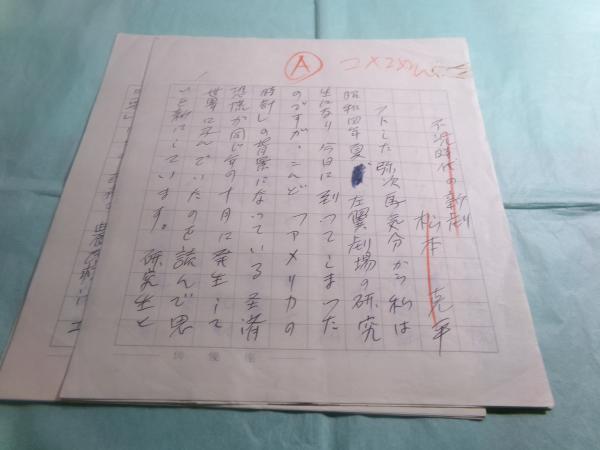 A
不況時代の新劇
松本克平
フトした弥次馬気分から私は
昭和四年夏、左翼劇場の研究
生になり今日に到ってしまった
のですが、こんど「アメリカの
時計」の背景になっている経済
恐慌が同じ年の十月に発生して
世界に及んでいたのを読んで思
いを新にしています。研究生と
俳優座